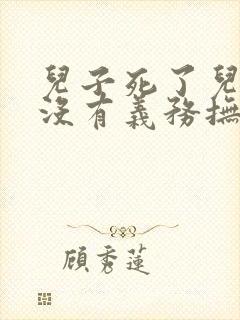 兒子死了兒
沒有義務撫
顧秀蓮